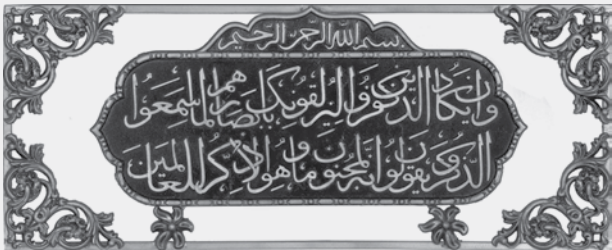 بسم الله الرحمن الرحيم
وان يكاد الذين كفروا ليزلقونك بابصارهم لما سمعوا
الذكر ويقولون انه لمجنون وما هو الا ذكر للعالمين